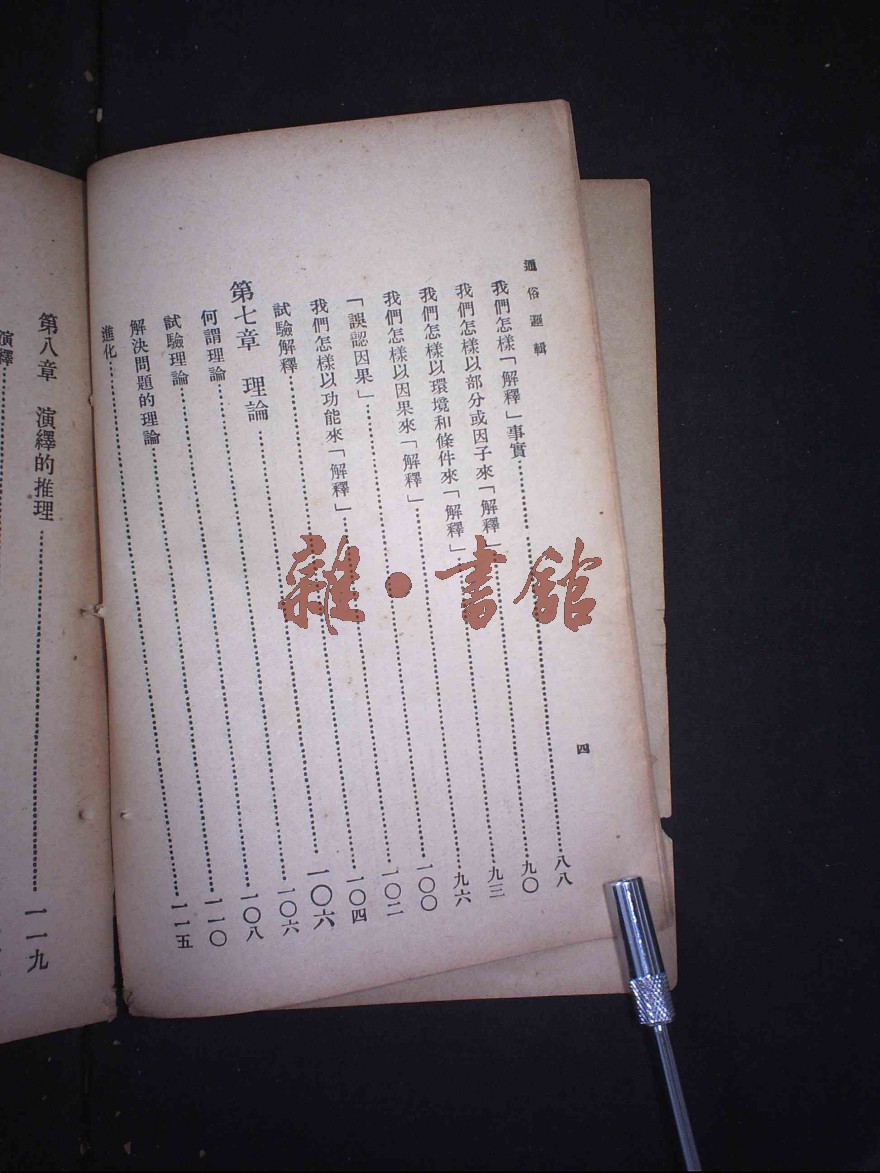 通俗邏輯
四
我們怎樣「解釋」事實……八八
我們怎樣以部分或因子來「解釋」……九〇
我們怎樣以環境和條件來「解釋」……九三
我們怎樣以因果來「解釋」……九六
「誤認因果」……一〇〇
我們怎樣以功能來「解釋」……一〇二
試驗解釋……一〇四
第七章 理論……一〇六
何謂理論……一〇六
試驗理論……一〇八
解決問題的理論……一一〇
進化……一一五
第八章 演繹的推理……一一九
演繹……
雜·書館